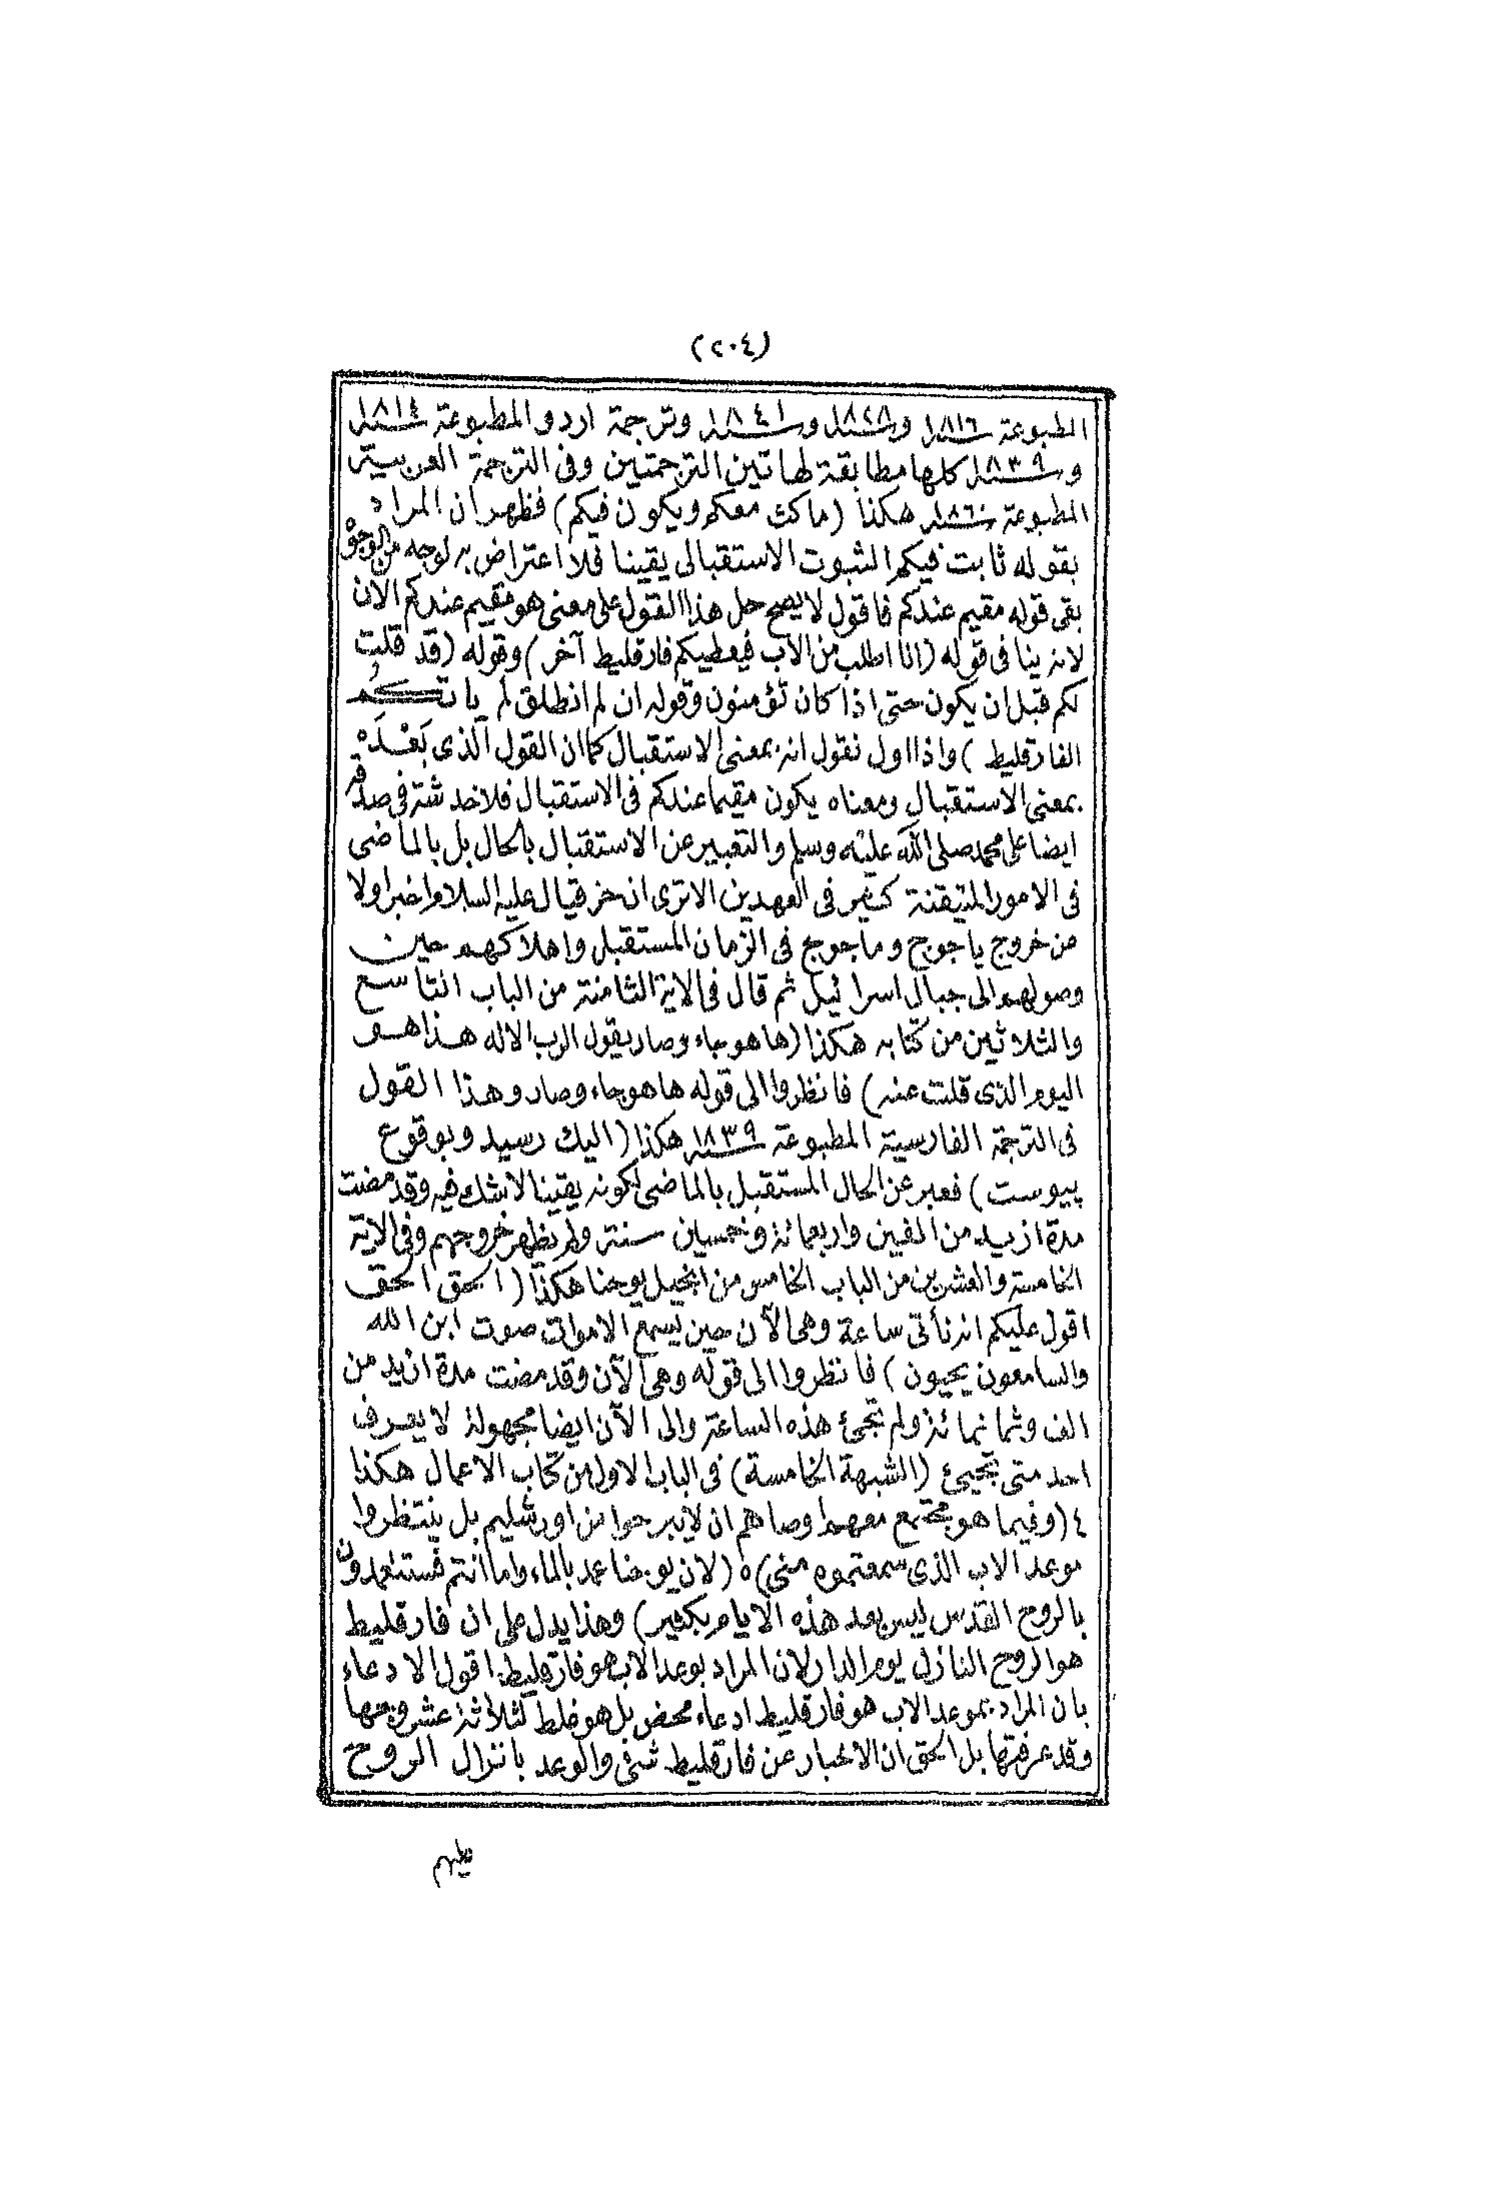 (٢٠٤)
المطبوعة سنة ١٨١٦ وسنة ١٨٢٨ وسنة ١٨٤١ وترجمة اردو المطبوعة سنة ١٨١٤
وسنة ١٨٣٩ كلها مطابقة لهاتين الترجمتين وفى الترجمة العربية
المطبوعة سنة ١٨٦٠ هكذا (ماكث معكم ويكون فيكم) فظهر ان المراد
بقوله ثابت فيكم الثبوت الاستقبالى يقينا فلا اعتراض به لوجه من الوجوه
بقى قوله مقيم عندكم فاقول لا يصح حمل هذا القول على معنى هو مقيم عندكم الان
لانه ينافى قوله (انا اطلب من الاب فيعطيكم فارقليط آخر) وقوله (قد قلت
لكم قبل ان يكون حتى اذا كان تؤمنون وقوله ان لم انطلق لم ياتكُم
الفارقليط) واذا اول نقول انه بمعنى الاستقبال كما ان القول الذى بَعْدَهْ
بمعنى الاستقبال ومعناه يكون مقيما عندكم فى الاستقبال فلا خدشة فى صدقه
ايضا على محمد صلى الله عليه وسلم والتعبير عن الاستقبال بالحال بل بالماضى
فى الامور المتيقنة كثير فى العهدين الا ترى ان حزقيال عليه السلام اخبر اولا
من خروج ياجوج وماجوج فى الزمان المستقبل واهلاكهم حين
وصولهم الى جبال اسرائيل ثم قال فى الاية الثامنة من الباب التاسع
والثلاثين من كتابه هكذا (ها هو جاء وصار يقول الرب الاله هذا هو
اليوم الذى قلت عنه) فانظروا الى قوله ها هو جاء وصار وهذا القول
فى الترجمة الفارسية المطبوعة سنة ١٨٣٩ هكذا (اليك رسيد وبوقوع
پيوست) فعبر عن الحال المستقبل بالماضى لكونه يقينا لا شك فيه وقد مضت
مدة ازيد من الفين واربعمائة وخمسين سنة ولم يظهر خروجهم وفى الاية
الخامسة والعشرين من الباب الخامس من انجيل يوحنا هكذا (الحق الحق
اقول عليكم انه تأتى ساعة وهى الآن حين يسمع الاموات صوت ابن الله
والسامعون يحيون) فانظروا الى قوله وهى الآن وقد مضت مدة ازيد من
الف وثمانمائة ولم تجئ هذه الساعة والى الآن ايضا مجهولة لا يعرف
احد متى تجيئ (الشبهة الخامسة) فى الباب الاول من كتاب الاعمال هكذا
٤ (وفيما هو مجتمع معهم اوصاهم ان لا يبرحوا من اورشليم بل ينتظروا
موعد الاب الذى سمعتموه منى) ٥ (لان يوحنا عمد بالماء واما انتم فستتعمدون
بالروح القدس ليس بعد هذه الايام بكثير) وهذا يدل على ان فارقليط
هو الروح النازل يوم الدار لان المراد بوعد الاب هو فارقليط اقول الادعاء
بان المراد بموعد الاب هو فارقليط ادعاء محض بل هو غلط لثلاثة عشر وجها
وقد عرفتها بل الحق ان الاخبار عن فارقليط شئ والوعد بانزال الروح